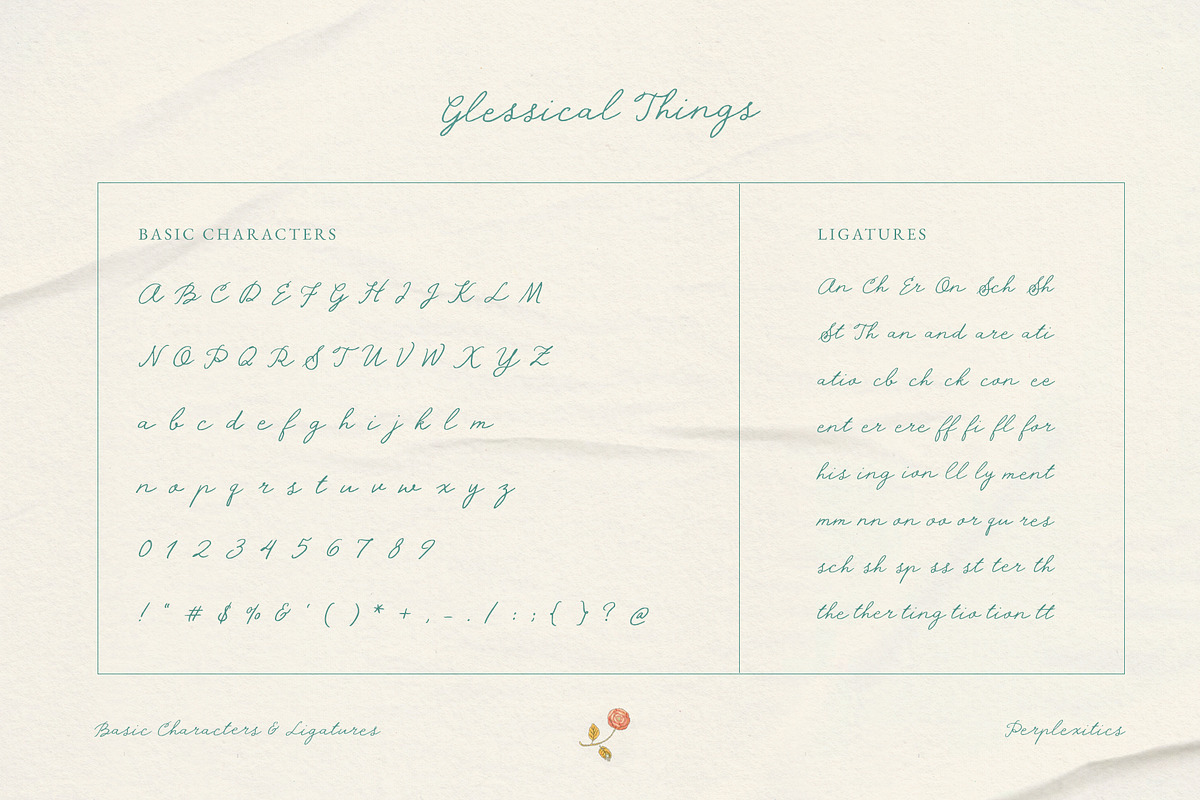 Glessical Things
BASIC CHARACTERS
A B C D E F G H I J K L M
N O P Q R S T U V W X Y Z
a b c d e f g h i j k l m
n o p q r s t u v w x y z
0 1 2 3 4 5 6 7 8 9
! " # $ % & ' ( ) * + , - . / : ; { } ? @
LIGATURES
An Ch Er On Sch Sh
St Th an and are ati
atio cb ch ck con ee
ent er ere ff fi fl for
his ing ion ll ly ment
mm nn on oo or qu res
sch sh sp ss st ter th
the ther ting tio tion tt
Basic Characters & Ligatures
Perplexitics